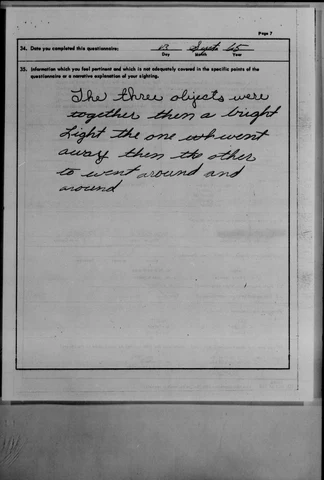 Page 7
34. Date you completed this questionnaire: 13 Sept 65
Day Month Year
35. Information which you feel pertinent and which is not adequately covered in the specific points of the
questionnaire or a narrative explanation of your sighting.
The three objects were
together then a bright
Light the one wh went
away then the other
to went around and
around